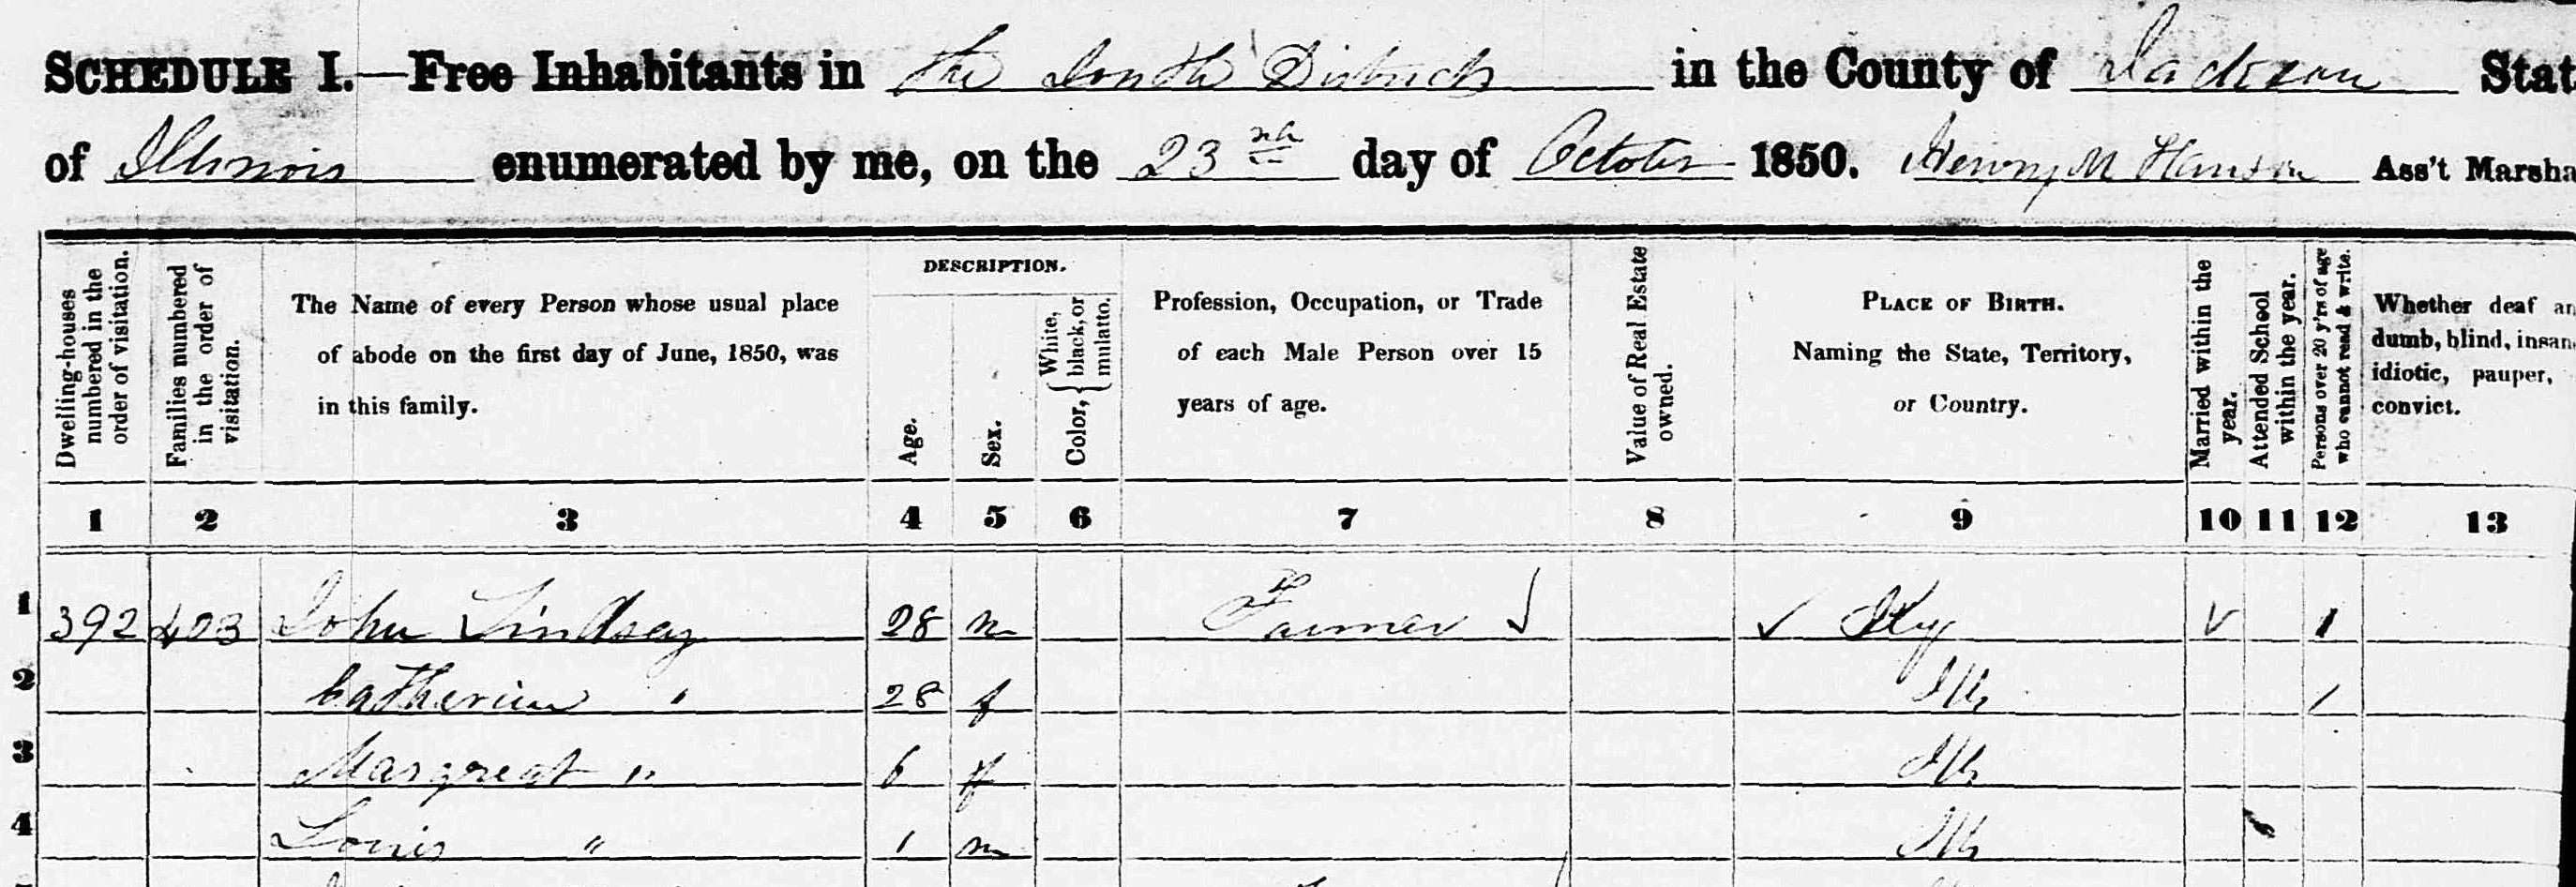 SCHEDULE I.—Free Inhabitants in the South District in the County of Jackson Stat
of Illinois enumerated by me, on the 23nd day of October 1850. Henry M Hanson Ass't Marsha
Dwelling-houses numbered in the order of visitation.
Families numbered in the order of visitation.
The Name of every Person whose usual place
of abode on the first day of June, 1850, was
in this family.
DESCRIPTION.
Age.
Sex.
Color, { White, black, or mulatto.
Profession, Occupation, or Trade
of each Male Person over 15
years of age.
Value of Real Estate owned.
PLACE OF BIRTH.
Naming the State, Territory,
or Country.
Married within the year.
Attended School within the year.
Persons over 20 y'rs of age who cannot read & write.
Whether deaf an
dumb, blind, insan
idiotic, pauper,
convict.
1 2 3 4 5 6 7 8 9 10 11 12 13
1 392 403 John Lindsay 28 m Farmer ✓ ✓ Ky ✓ 1
2 Catherine " 28 f Ills 1
3 Margreat " 6 f Ills
4 Louis " 1 m Ills